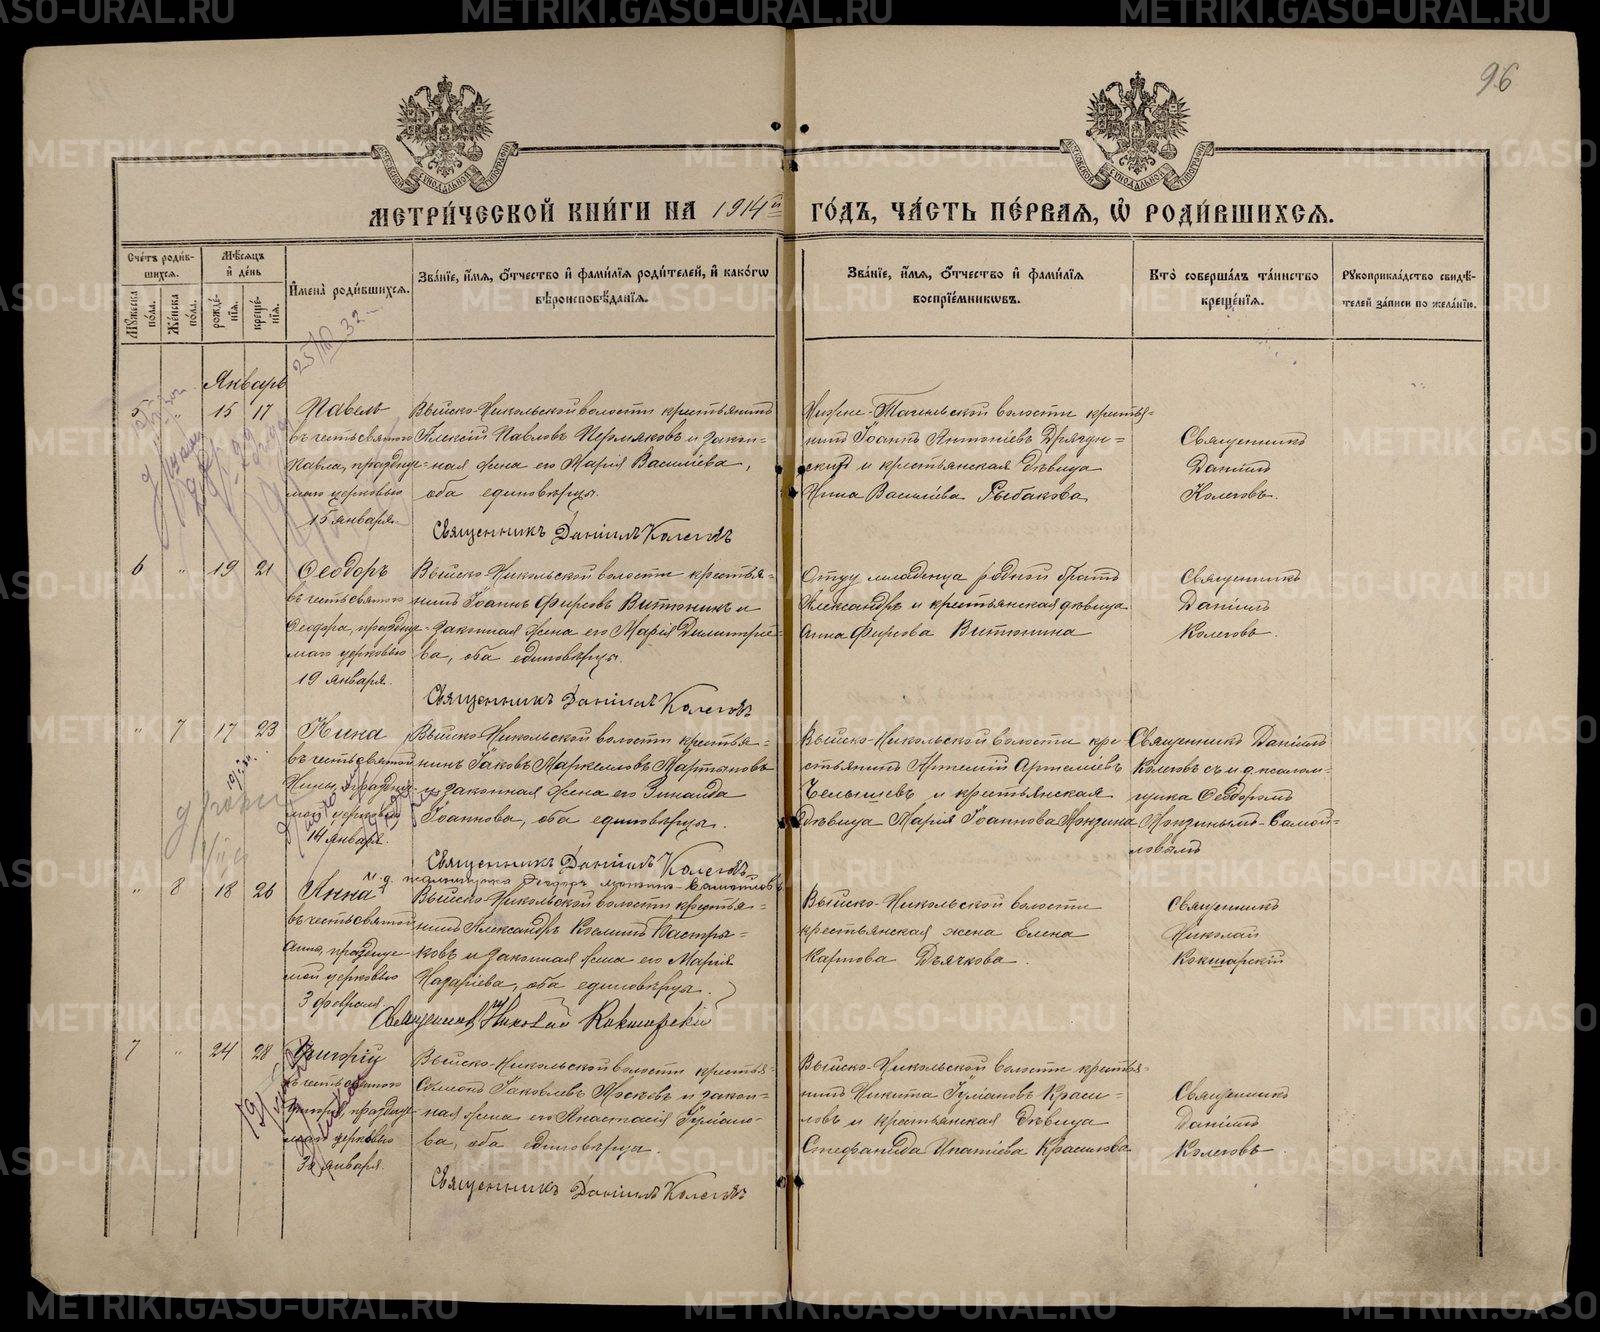 96
МЕТРИ́ЧЕСКОЙ КНИ́ГИ НА 1914й ГО́ДЪ, ЧА́СТЬ ПЕ́РВАЯ, Ѡ҆ РОДИ́ВШИХСЯ.
Сче́тъ роди́в-
шихся.
Мѣ́сяцъ
и҆ де́нь
Мꙋ́жеска по́ла.
Же́нска по́ла.
рожде́-
нїя.
креще́-
нїя.
И҆мена̀ роди́вшихся.
Зва́нїе, и҆́мя, ѻ҆́тчество и҆ фами́лїя роди́телей, и҆ како́гѡ
вѣроисповѣ́данїя.
Зва́нїе, и҆́мя, ѻ҆́тчество и҆ фами́лїя
воспрїе́мникѡвъ.
Кто̀ соверша́лъ та́инство
креще́нїя.
Рꙋкоприкла́дство свидѣ́-
телей за́писи по жела́нїю.
Январь
5 " 15 17
Павелъ
въ честь святого
Павла, праздну-
маго церковью
15 января.
Выйско-Никольской волости крестьянинъ
Алексій Павловъ Пермяковъ и закон-
ная жена его Марія Василіева,
оба единовѣрцы.
Священникъ Даніилъ Колеговъ
Нижне-Тагильской волости крестья-
нинъ Іоаннъ Антоніевъ Дрягун-
скій и крестьянская дѣвица
Нина Василіева Рыбакова
Священникъ
Даніилъ
Колеговъ.
6 " 19 21
Ѳеодоръ
въ честь святого
Ѳеодора, праздну-
маго церковью
19 января.
Выйско-Никольской волости крестья-
нинъ Іоаннъ Фирсовъ Витюнинъ и
законная жена его Марія Димитріе-
ва, оба единовѣрцы.
Священникъ Даніилъ Колеговъ
Отцу младенца родной братъ
Александръ и крестьянская дѣвица
Анна Фирсова Витюнина
Священникъ
Даніилъ
Колеговъ.
" 7 17 23
Нина
въ честь святой
Нины, праздну-
мой церковью
14 января.
Выйско-Никольской волости крестья-
нинъ Іаковъ Маркелловъ Мартыновъ
и законная жена его Зинаида
Іоаннова, оба единовѣрцы.
Священникъ Даніилъ Колеговъ
И. д. псаломщика Ѳеодоръ Мокзинъ-Самойловъ
Выйско-Никольской волости кре-
стьянинъ Артемій Артеміевъ
Челышевъ и крестьянская
дѣвица Марія Іоаннова Мокзина
Священникъ Даніилъ
Колеговъ съ и. д. псалом-
щика Ѳеодоромъ
Мокзинымъ-Самой-
ловымъ
" 8 18 26
Анна
въ честь святой
Анны, праздну-
мой церковью
3 февраля.
Выйско-Никольской волости крестья-
нинъ Александръ Козминъ Пастры-
ковъ и законная жена его Марія
Назаріева, оба единовѣрцы.
Священникъ Николай Кокшарскій
Выйско-Никольской волости
крестьянская жена Елена
Карпова Дьячкова.
Священникъ
Николай
Кокшарскій
7 " 24 28
Григорій
въ честь святого
Григорія, праздну-
маго церковью
30 января.
Выйско-Никольской волости крестья-
Симеонъ Іаковлевъ Носковъ и закон-
ная жена его Анастасія Іуліано-
ва, оба единовѣрцы.
Священникъ Даніилъ Колеговъ
Выйско-Никольской волости крестья-
нинъ Никита Іуліановъ Краси-
ловъ и крестьянская дѣвица
Стефанида Ипатіева Красилова
Священникъ
Даніилъ
Колеговъ
METRIKI.GASO-URAL.RU